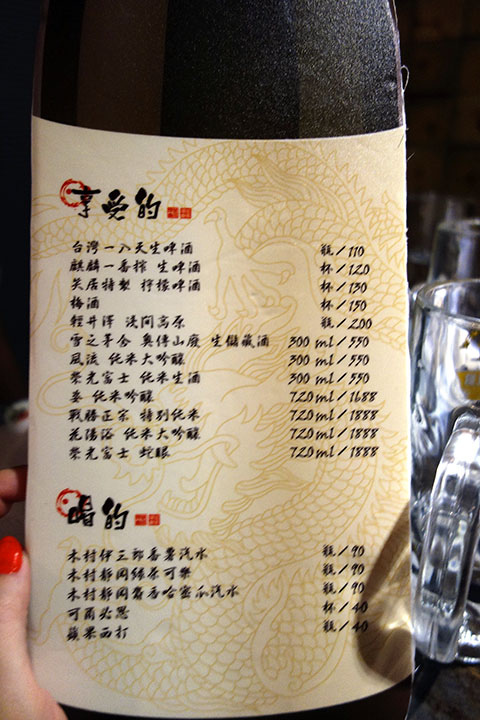 享受的
台灣一八天生啤酒 瓶/110
麒麟一番搾 生啤酒 杯/120
笑居特製 檸檬啤酒 杯/130
梅酒 杯/150
輕井澤 淺間高原 瓶/200
雪之茅舍 奧傳山廢 生儲藏酒 300 ml/550
風流 純米大吟釀 300 ml/550
榮光富士 純米生酒 300 ml/550
峯 純米吟釀 720 ml/1688
戰勝正宗 特別純米 720 ml/1888
花陽浴 純米大吟釀 720 ml/1888
榮光富士 蛇眼 720 ml/1888
喝的
木村伊三郎番薯汽水 瓶/90
木村靜岡綠茶可樂 瓶/90
木村靜岡麝香哈密瓜汽水 瓶/90
可爾必思 杯/40
蘋果西打 瓶/40